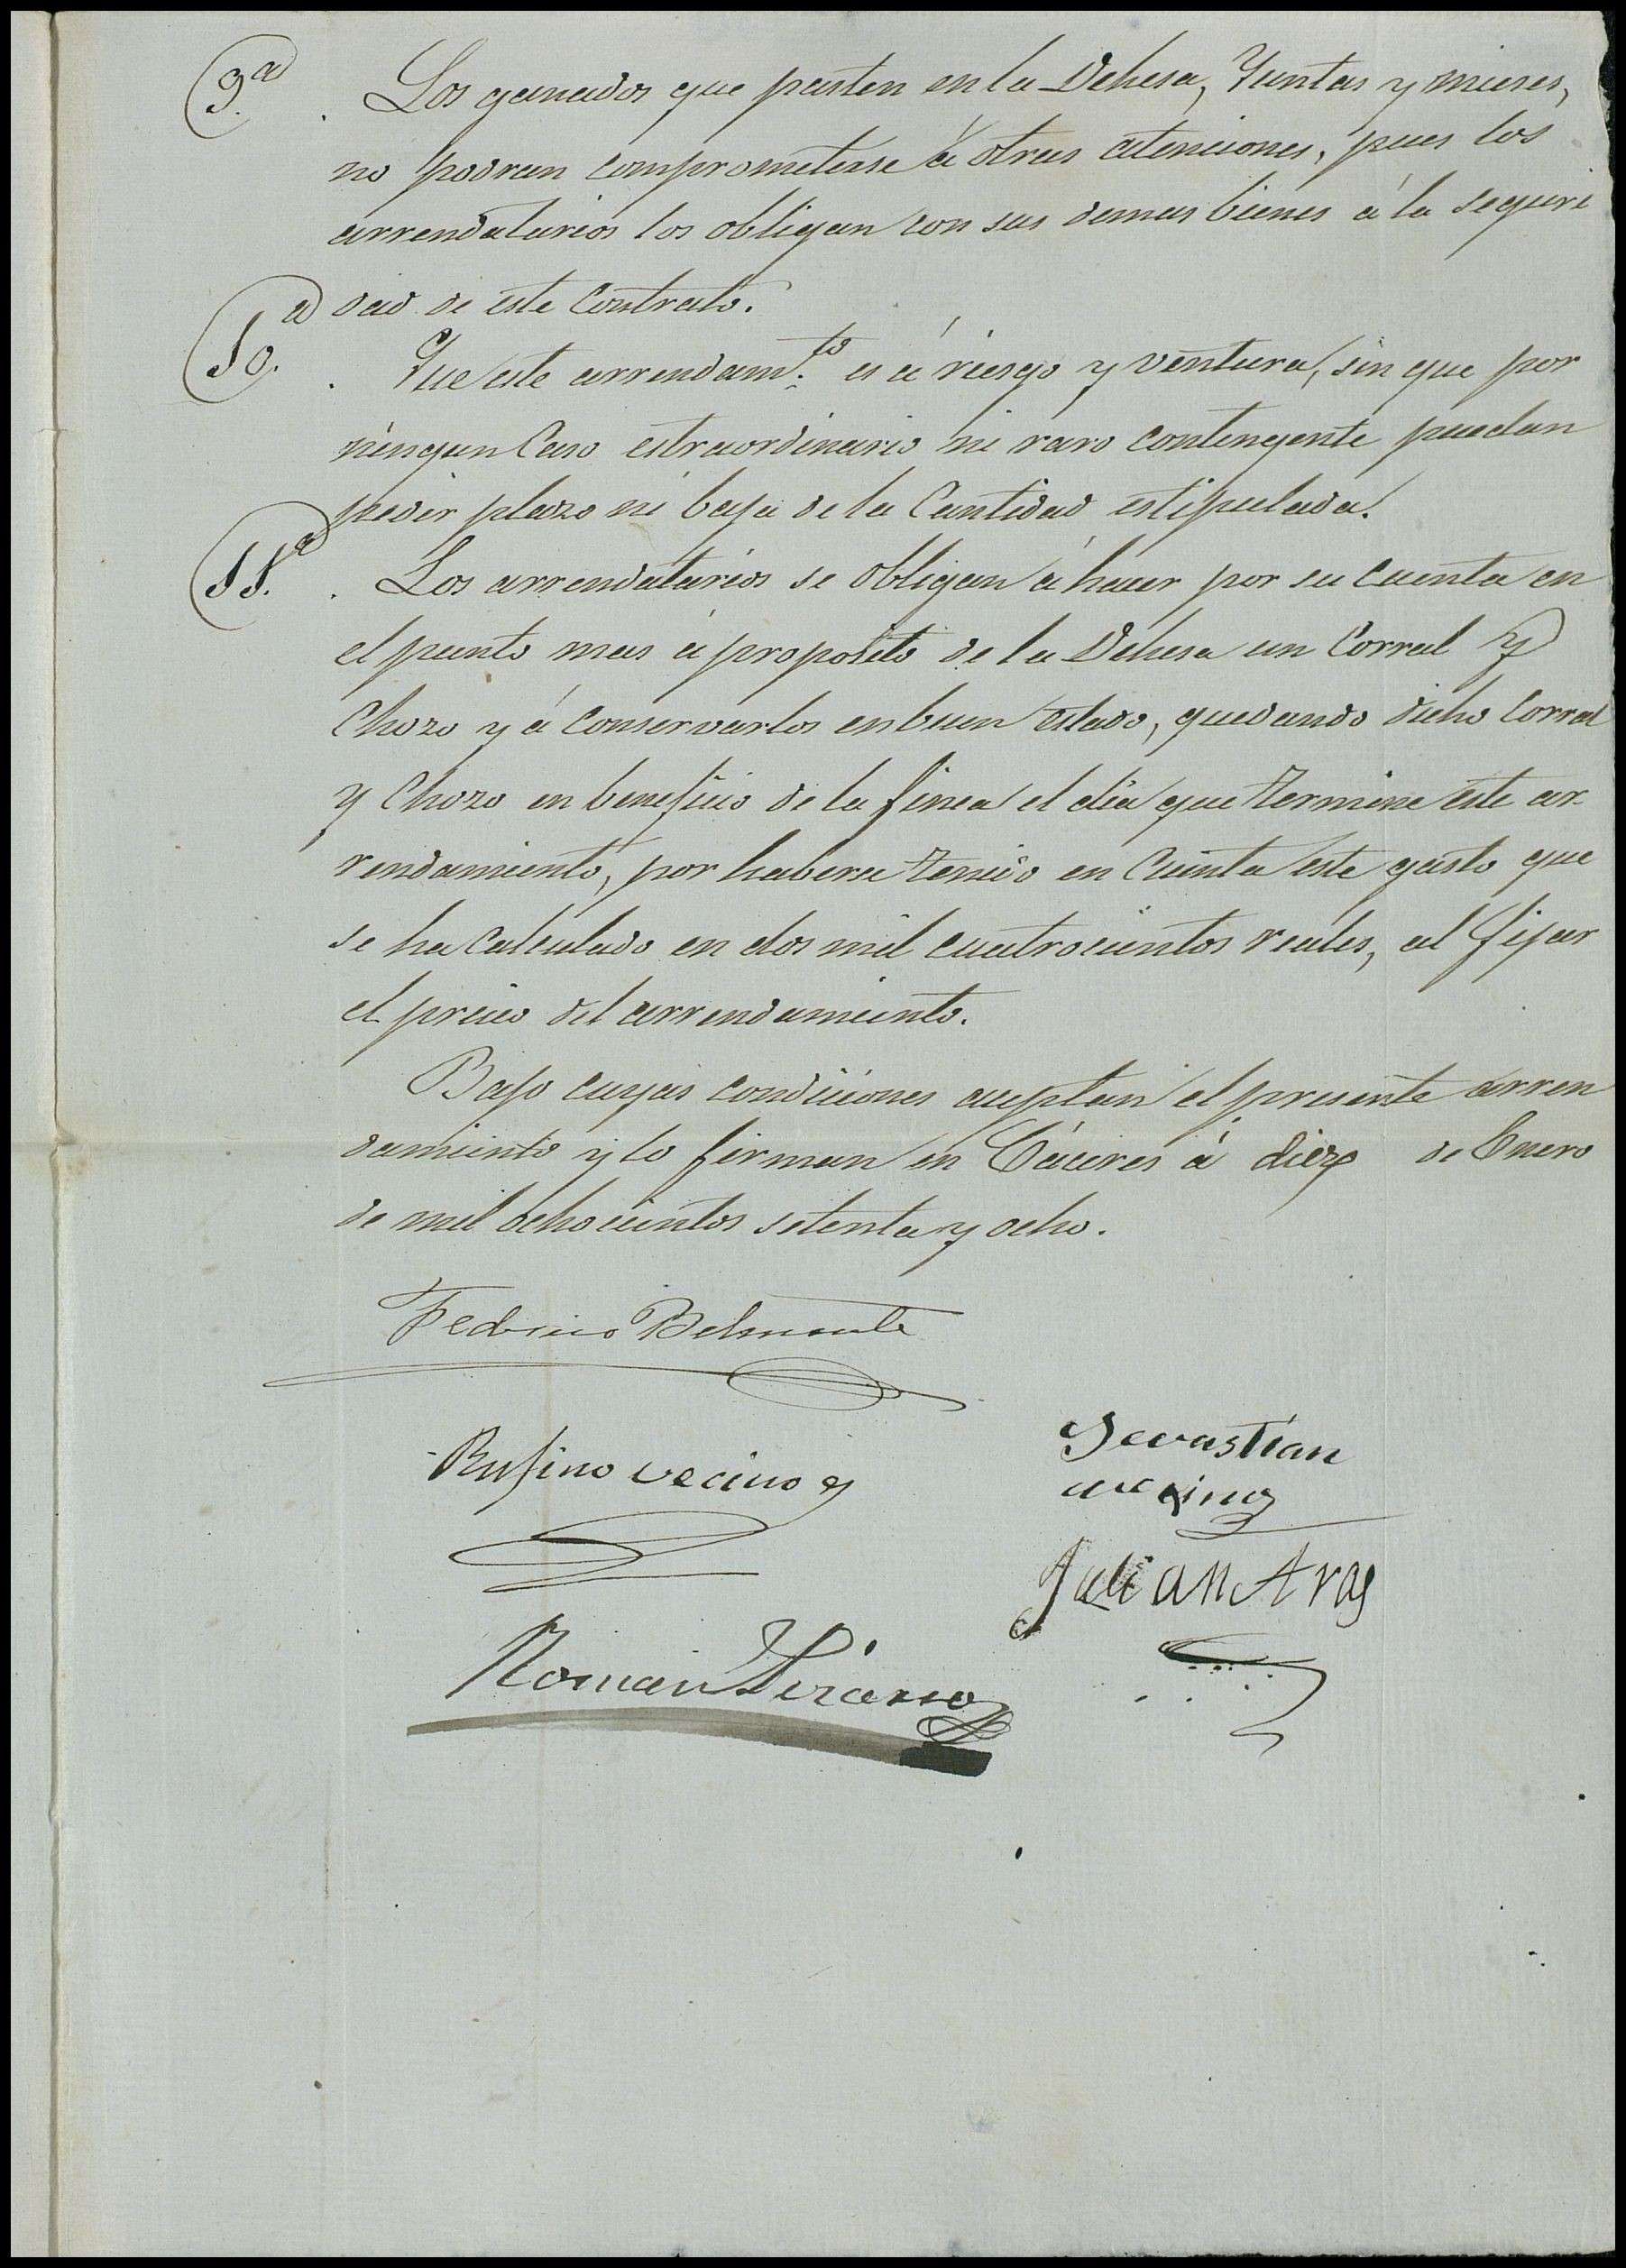 9.ª Los ganados que pasten en la Dehesa, Yuntas y mieses,
no podran comprometerse á otras atenciones, pues los
arrendatarios los obligan con sus demas bienes á la seguri
dad de este Contrato.
10.ª Que este arrendam.to es á riesgo y ventura, sin que por
ningun Caso estraordinario ni raro contingente puedan
pedir plazo ni baja de la Cantidad estipulada.
11.ª Los arrendatarios se obligan á hacer por su cuenta en
el punto mas á proposito de la Dehesa un Corral y
Chozo y á conservarlos en buen estado, quedando dicho Corral
y Chozo en beneficio de la finca el dia que termine este ar-
rendamiento, por haberse tenido en Cuenta este gasto que
se ha Calculado en dos mil cuatrocientos reales, al fijar
el precio del arrendamiento.
Bajo cuyas condiciones aceptan el presente arren
damiento y lo firman en Cáceres á diez de Enero
de mil ochocientos setenta y ocho.
Federico Belmonte
Rufino vecino
Sevastian
Julian
Roman